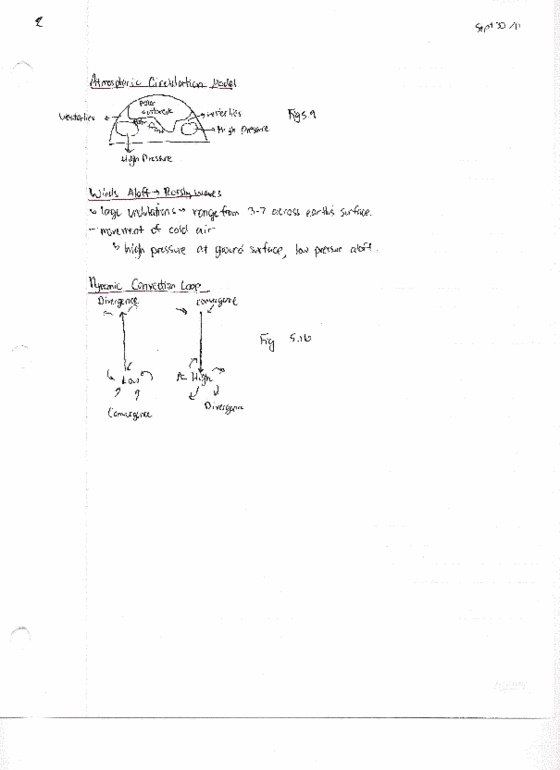 2
Sept 30 /11
Atmospheric Circulation Model
Polar
outbreak
westerlies
westerlies
High Pressure
Fig 5.9
High Pressure
Winds Aloft → Rossby waves
↳ large undulations → range from 3-7 across earth's surface.
- movement of cold air
↳ high pressure at ground surface, low pressure aloft.
Dynamic Convection Loop
Divergence
Convergence
Fig 5.16
Low
High
Convergence
Divergence